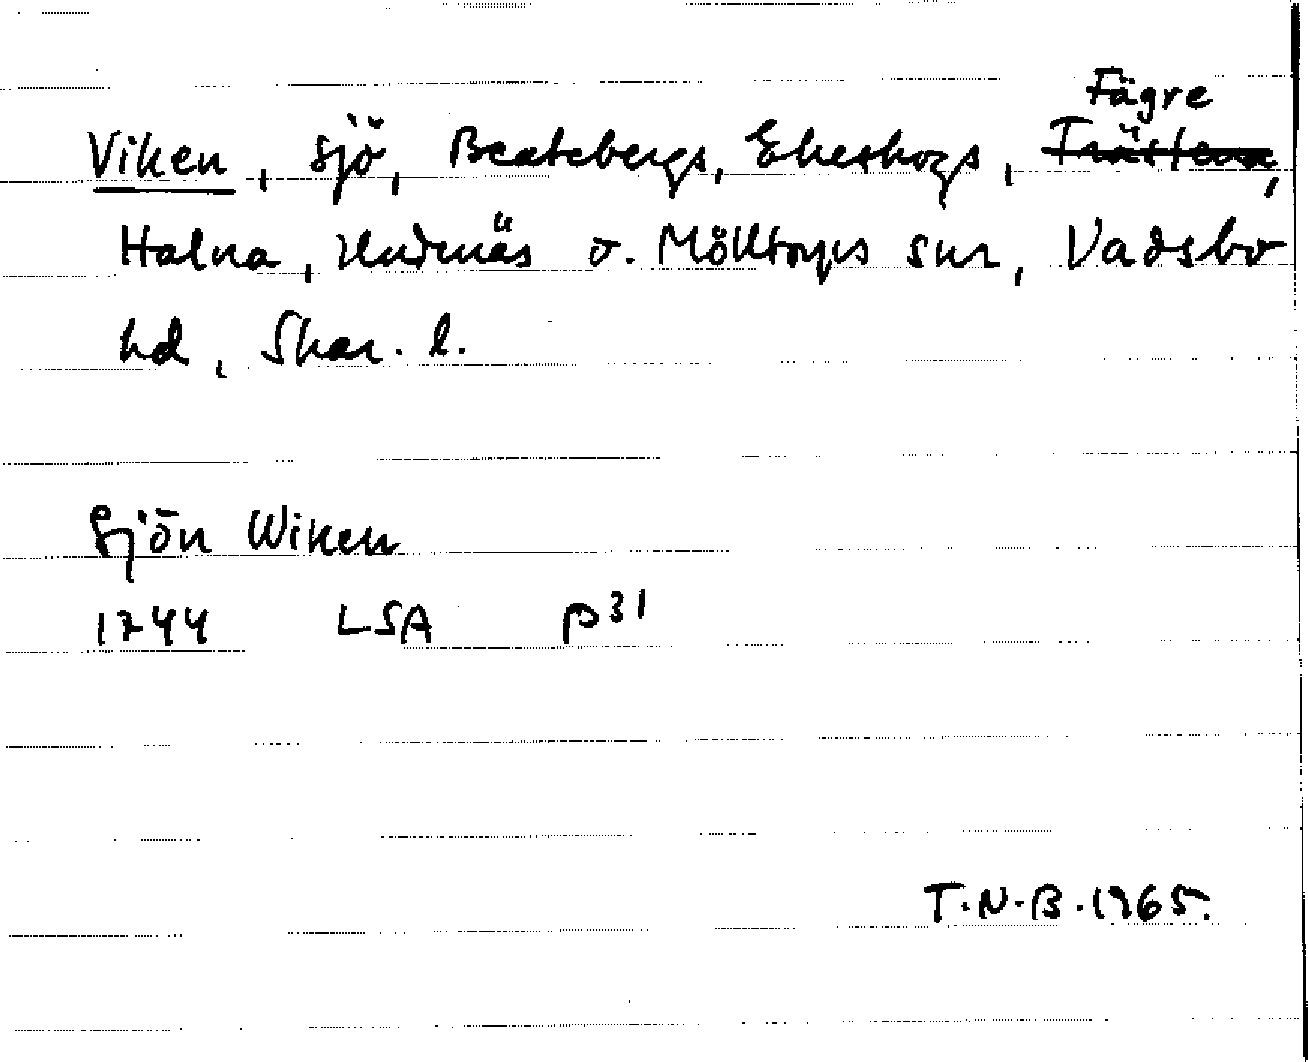 Fägre
Viken, sjö, Beatebergs, Ekeskogs, Trästena,
Halna, Undenäs o. Mölltorps snr, Vadsbo
hd, Skar. l.
Sjön Wiken
1744 LSA P31
T.N.B. 1965.